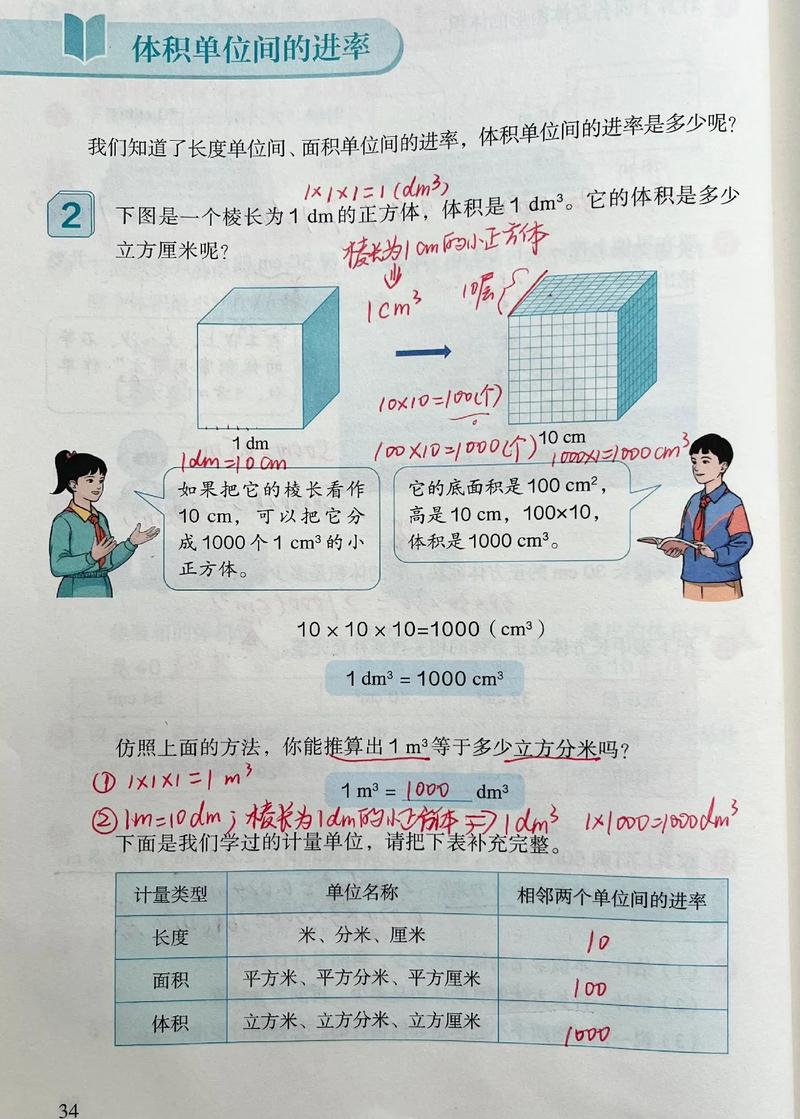 体积单位间的进率
我们知道了长度单位间、面积单位间的进率，体积单位间的进率是多少呢？
1×1×1=1(dm³)
2 下图是一个棱长为1 dm的正方体，体积是1 dm³。它的体积是多少
立方厘米呢？
棱长为1cm的小正方体
⇓
1cm³
10层
10×10=100(个)
100×10=1000(个)
1 dm
10 cm
1dm=10cm
1000×1=1000cm³
如果把它的棱长看作
10 cm，可以把它分
成1000个1 cm³的小
正方体。
它的底面积是100 cm²，
高是10 cm，100×10，
体积是1000 cm³。
10 × 10 × 10=1000（cm³）
1 dm³ = 1000 cm³
仿照上面的方法，你能推算出1 m³等于多少立方分米吗？
① 1×1×1=1 m³
1 m³ = 1000 dm³
② 1m=10dm；棱长为1dm的小正方体 ⇒ 1dm³ 1×1000=1000dm³
下面是我们学过的计量单位，请把下表补充完整。
计量类型 单位名称 相邻两个单位间的进率
长度 米、分米、厘米 10
面积 平方米、平方分米、平方厘米 100
体积 立方米、立方分米、立方厘米 1000
34